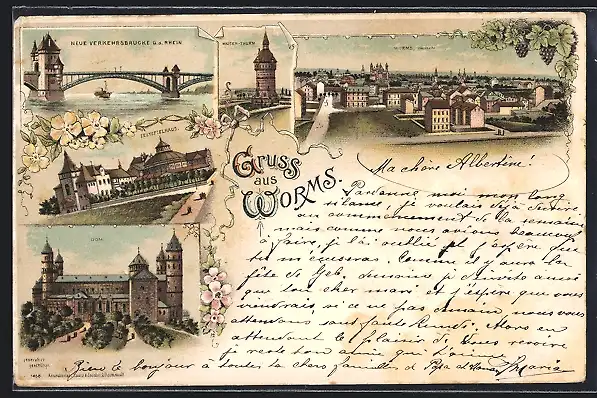 NEUE VERKEHRSBRÜCKE ü. d. RHEIN
WASSER-THURM
WORMS
FESTSPIELHAUS.
DOM.
Gruss
aus
WORMS.
Ma chère Albertine!
Pardonne moi mon long
silence, je voulais déjà t'écrire
au commencement de la semaine
mais comme nous avions beaucoup
à faire, je l'ai oublié et j'espère que
tu m'excuseras. Comme il y aura la
fête de demain j'invite aussi
que ton cher mari et j'espère que vous
viendrais, si ce ne pas demain, nous vous
attendons sans faute Lundi. Alors en
attendant le plaisir de vous revoir
je reste ton amie qui t'aime
Maria
Bien le bonjour à toutes la chère familles de Papa et
GESETZLICH
GESCHÜTZT